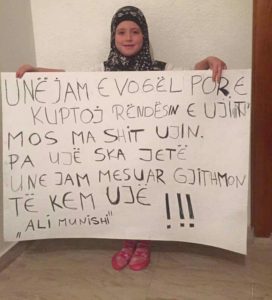 UNË JAM E VOGËL POR E
KUPTOJ RËNDËSIN E UJIT!!
MOS MA SHIT UJIN.
PA UJË SKA JETË
UNE JAM MESUAR GJITHMON
TË KEM UJË !!!
„ALI MUNISHI"